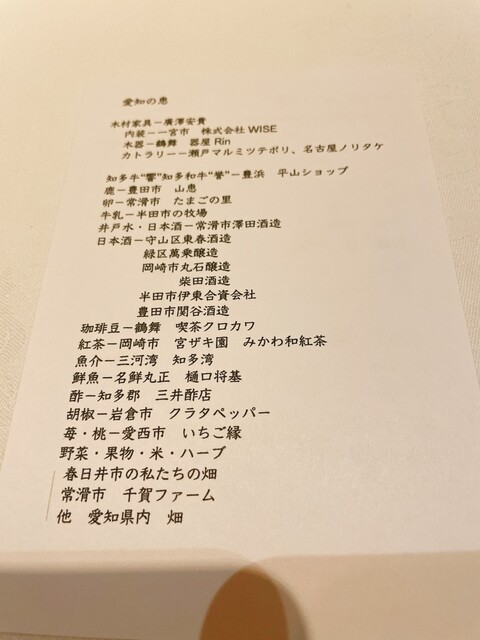 愛知の恵
木村家具－廣澤安貴
内装－一宮市　株式会社 WISE
木器－鶴舞　器屋 Rin
カトラリー－瀬戸マルミツテポリ、名古屋ノリタケ
知多牛“響”知多和牛“誉”－豊浜　平山ショップ
鹿－豊田市　山恵
卵－常滑市　たまごの里
牛乳－半田市の牧場
井戸水・日本酒－常滑市澤田酒造
日本酒－守山区東春酒造
緑区萬乗醸造
岡崎市丸石醸造
柴田酒造
半田市伊東合資会社
豊田市関谷酒造
珈琲豆－鶴舞　喫茶クロカワ
紅茶－岡崎市　宮ザキ園　みかわ和紅茶
魚介－三河湾　知多湾
鮮魚－名鮮丸正　樋口将基
酢－知多郡　三井酢店
胡椒－岩倉市　クラタペッパー
苺・桃－愛西市　いちご縁
野菜・果物・米・ハーブ
春日井市の私たちの畑
常滑市　千賀ファーム
他　愛知県内　畑